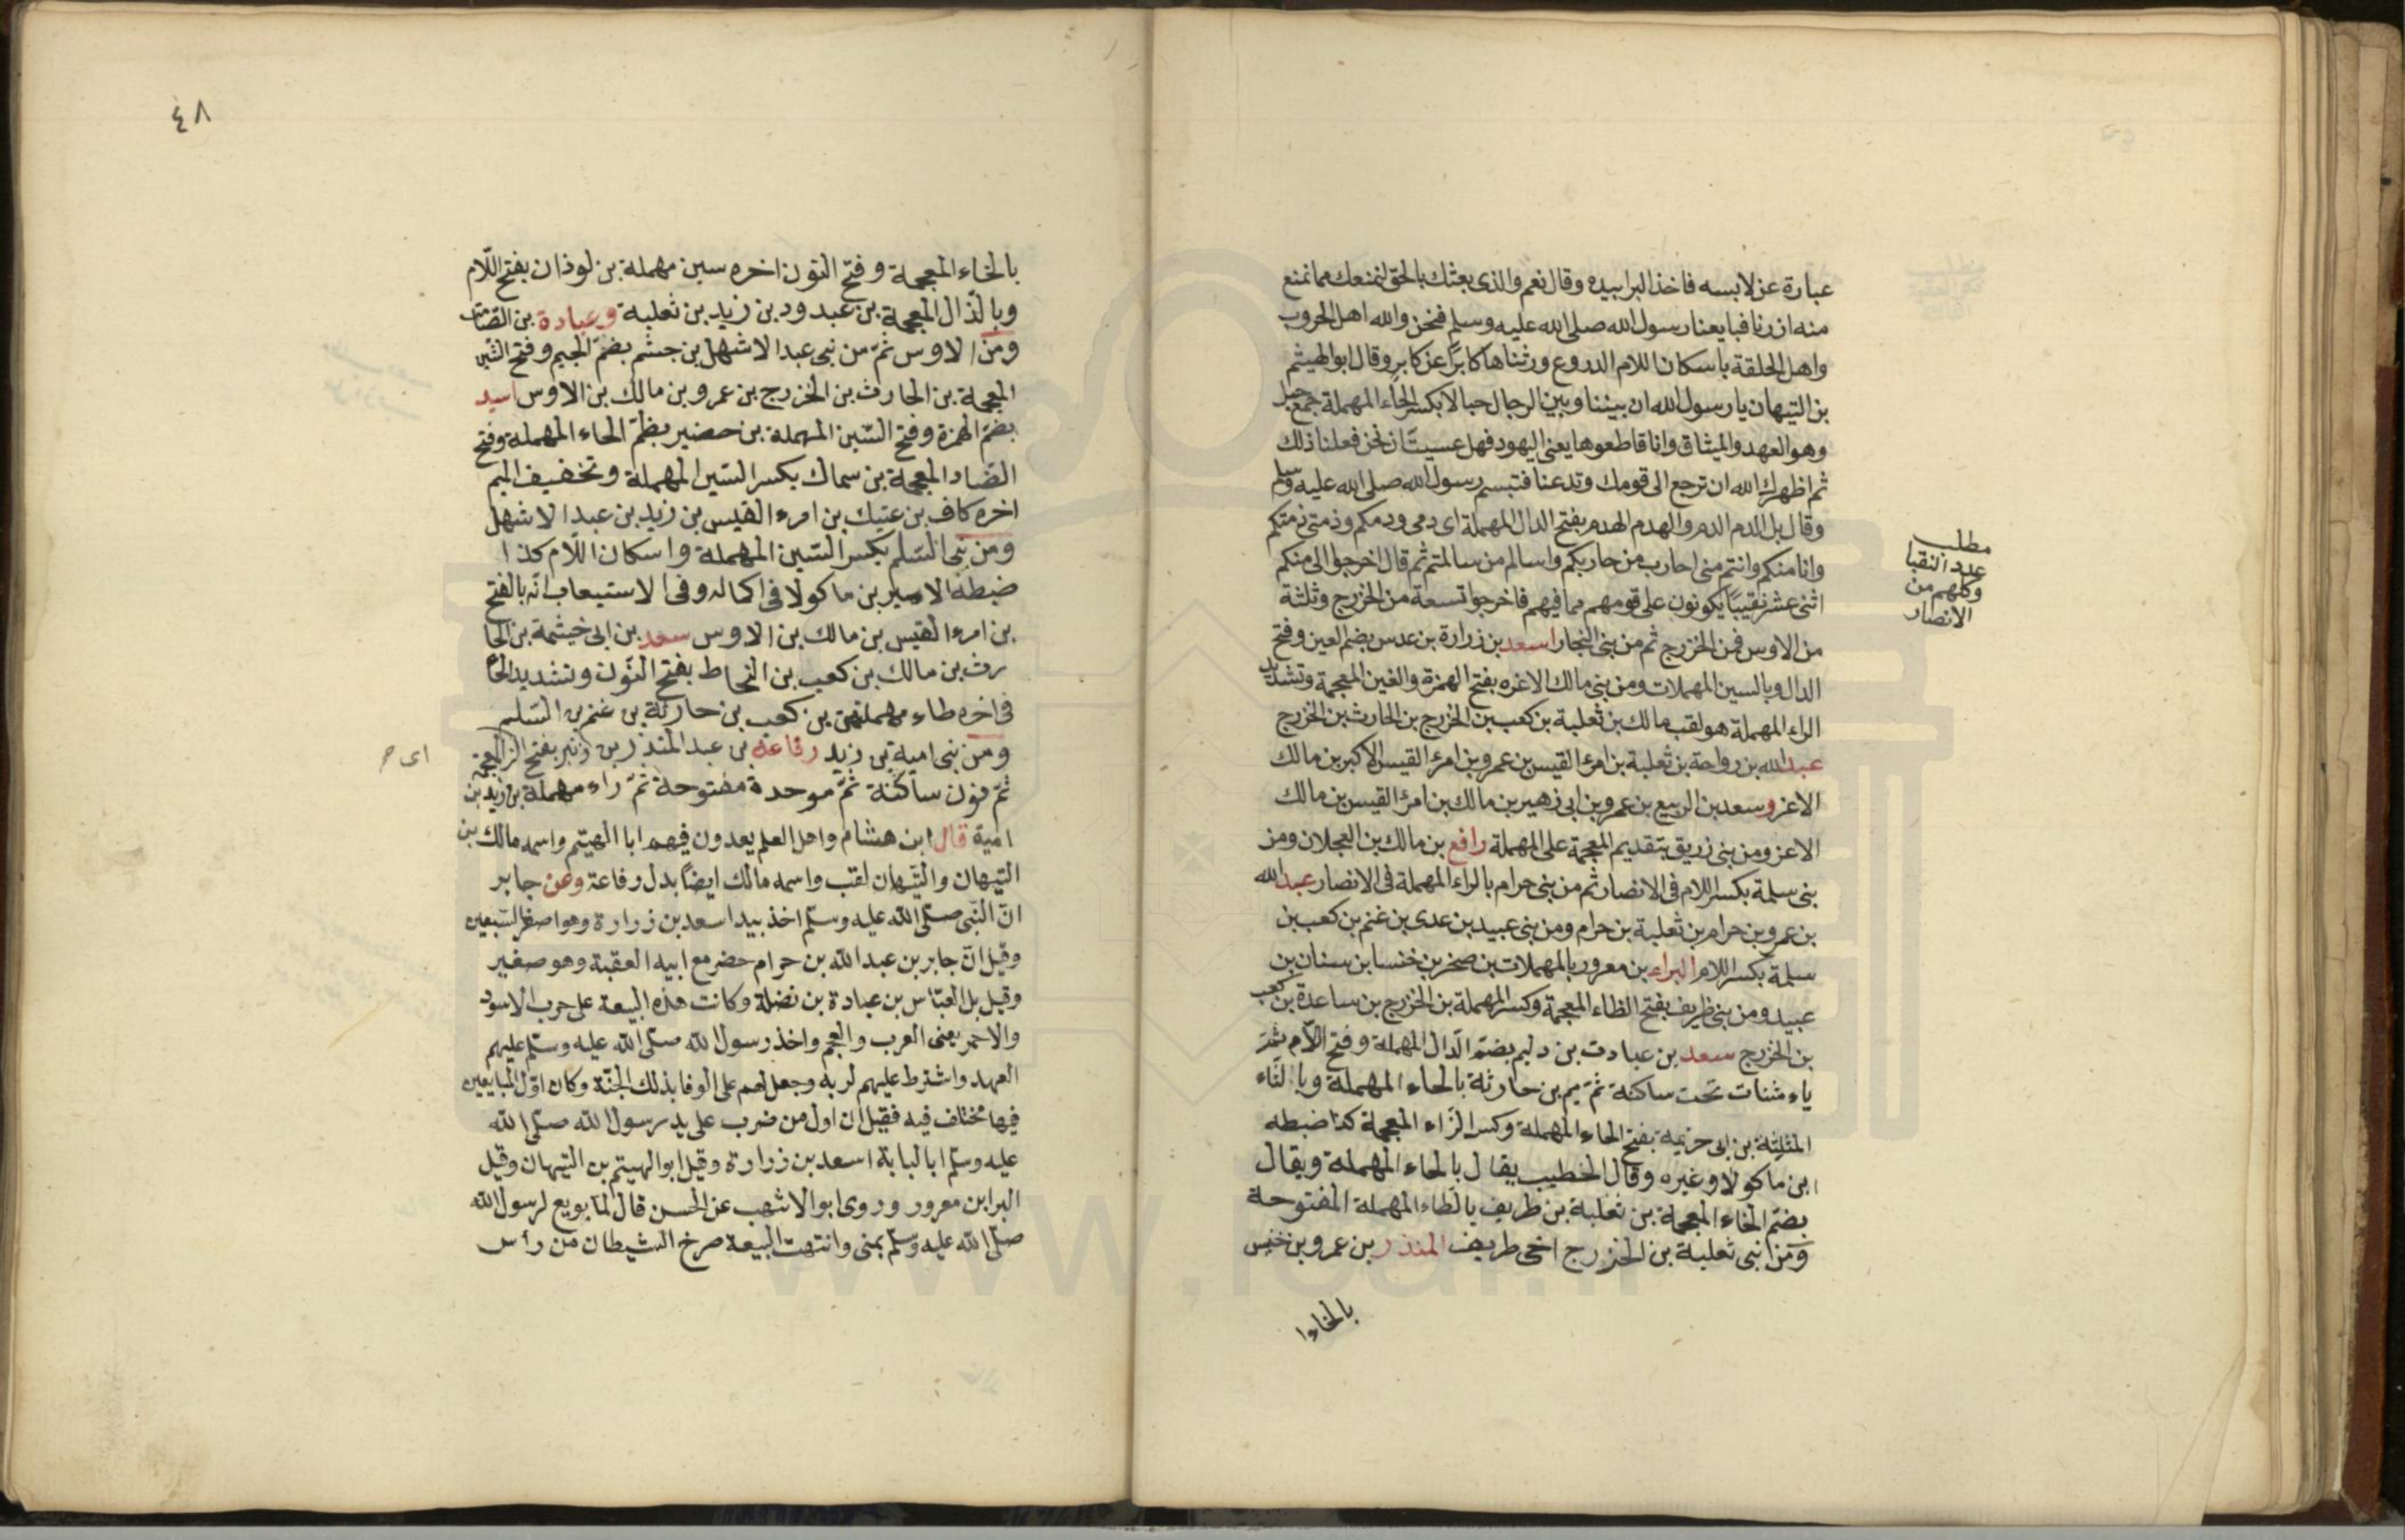 عبارة عن لابسه فاخذ البرا بيده وقال نعم والذي بعثك بالحق لنمنعك مما نمنع
منه ازرنا فبايعنا رسول الله صلى الله عليه وسلم فنحن والله اهل الحروب
واهل الحلقة باسكان اللام الدروع ورثناها كابرًا عن كابر وقال ابو الهيثم
بن التيهان يا رسول الله ان بيننا وبين الرجال حبالا بكسر الحاء المهملة جمع حبل
وهو العهد والميثاق وانا قاطعوها يعنى اليهود فهل عسيت ان نحن فعلنا ذلك
ثم اظهرك الله ان ترجع الى قومك وتدعنا فتبسم رسول الله صلى الله عليه وسلم
وقال بل الدم الدم والهدم الهدم بفتح الدال المهملة اى دمى ودمكم وذمتى ذمتكم
وانا منكم وانتم منى احارب من حاربكم واسالم من سالمتم ثم قال اخرجوا الى منكم
اثنى عشر نقيبًا يكونون على قومهم مما فيهم فاخرجوا تسعة من الخزرج وثلثة
من الاوس فمن الخزرج ثم من بنى النجار اسعد بن زرارة بن عدس بضم العين وفتح
الدال وبالسين المهملات ومن بنى مالك الاغره بفتح الهمزة والغين المعجمة وتشديد
الراء المهملة هو لقب مالك بن ثعلبة بن كعب بن الخزرج بن الحارث بن الخزرج
عبد الله بن رواحة بن ثعلبة بن امرء القيس بن عمرو بن امرء القيس الاكبر بن مالك
الاعز وسعد بن الربيع بن عمرو بن ابى زهير بن مالك بن امرء القيس بن مالك
الاعز ومن بنى زريق بتقديم المعجمة على المهملة رافع بن مالك بن العجلان ومن
بنى سلمة بكسر اللام فى الانصار ثم من بنى حرام بالراء المهملة فى الانصار عبد الله
بن عمرو بن حرام بن ثعلبة بن حرام ومن بنى عبيد بن عدى بن غنم بن كعب بن
سلمة بكسر اللام البراء بن معرور بالمهملات بن صخر بن خنسا بن سنان بن
عبيد ومن بنى ظريف بفتح الظاء المعجمة وكسر المهملة بن الخزرج بن ساعدة بن كعب
بن الخزرج سعد بن عبادت بن دليم بضم الدال المهملة وفتح اللام ثمّ
ياء مثنات تحت ساكنة ثمّ ميم بن حارثة بالحاء المهملة وبا الثاء
المثلثة بن ابى حزيمة بفتح الحاء المهملة وكسر الزاء المعجمة كذا ضبطه
ابن ماكولا وغيره وقال الخطيب يقال بالحاء المهملة ويقال
بضم الخاء المعجمة بن ثعلبة بن طريف بالطاء المهملة المفتوحة
ومن ابنى ثعلبة بن الخزرج اخى طريف المنذر بن عمرو بن خنيس
بالخاءا
مطلب
عدد النقبا
وكلهم من
الانصار
٤٨
بالخاء المعجمة وفتح النون اخره سين مهملة بن لوذان بفتح اللّام
وبالذّال المعجمة بن عبد ود بن زيد بن ثعلبة وعبادة بن الصّامت
ومن الاوس ثمّ من نبى عبد الاشهل بن جشم بضمّ الجيم وفتح الشّين
المعجمة بن الحارث بن الخزرج بن عمرو بن مالك بن الاوس اسيد
بضمّ الهمزة وفتح السّين المهملة بن حضير بظمّ الحاء المهملة وفتح
الضّاد المعجمة بن سماك بكسر السّين المهملة وتخفيف الميم
اخره كاف بن عتيك بن امرء القيس بن زيد بن عبد الاشهل
ومن بنى السّلم بكسر السّين المهملة واسكان اللّام كذا
ضبطه الامير بن ماكولا فى اكماله وفى الاستيعاب انّه بالفتح
بن امرء القيس بن مالك بن الاوس سعد بن ابى خيثمة بن الحا
رث بن مالك بن كعب بن النحاط بفتح النّون وتشديد الحا
فى اخره طاء مهملة بن كعب بن حارثة بن غنم بن السّلم
ومن بنى امية بن زيد رفاعة بن عبد المنذر بن زنبر بفتح الزا المعجمة
ثمّ نون ساكنة ثمّ موحدة مفتوحة ثمّ راء مهملة بن زيد بن
امية قال ابن هشام واهل العلم يعدون فيهم ابا الهيتم واسمه مالك بن
التيهان والتّيهان لقب واسمه مالك ايضاً بدل رفاعة وعن جابر
انّ النّبى صلّى الله عليه وسلّم اخذ بيد اسعد بن زرارة وهو اصغر السّبعين
وقيل انّ جابر بن عبد الله بن حرام حضر مع ابيه العقبة وهو صغير
وقيل بل العبّاس بن عبادة بن نضلة وكانت هذه البيعة على حرب الاسود
والاحمر يعنى العرب والعجم واخذ رسول الله صلّى الله عليه وسلّم عليهم
العهد واشترط عليهم لربه وجعل لهم على الوفا بذلك الجنّة وكان اوّل المبايعين
فيها مختلف فيه فقيل ان اول من ضرب على يد رسول الله صلّى الله
عليه وسلّم ابالبابة اسعد بن زرارة وقيل ابو الهيتم بن التيهان وقيل
البرا بن معرور وروى ابو الاشهب عن الحسن قال لمّا بويع لرسول الله
صلّى الله عليه وسلّم بمنى وانتهت البيعة صرخ الشيطان من رأس